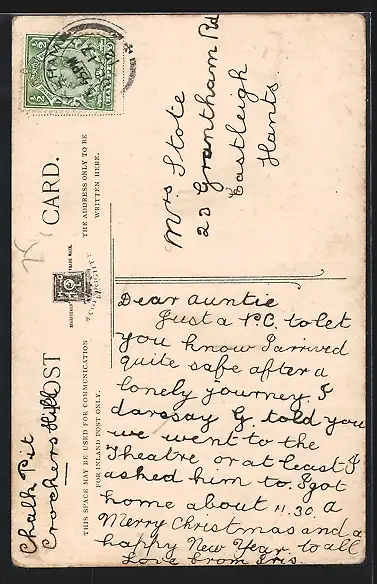 POST CARD.
THIS SPACE MAY BE USED FOR COMMUNICATION
FOR INLAND POST ONLY.
THE ADDRESS ONLY TO BE
WRITTEN HERE.
Chalk Pit
Crochers Hill
Mrs Stote
23 Grantham Rd
Eastleigh
Hants.
Dear Auntie
Just a P.C. to let
you know I arrived
quite safe after a
lonely journey. I
daressay G. told you
we went to the
Theatre or at least I
asked him to. I got
home about 11.30. A
Merry Christmas and a
happy New Year to all
Love from Iris.